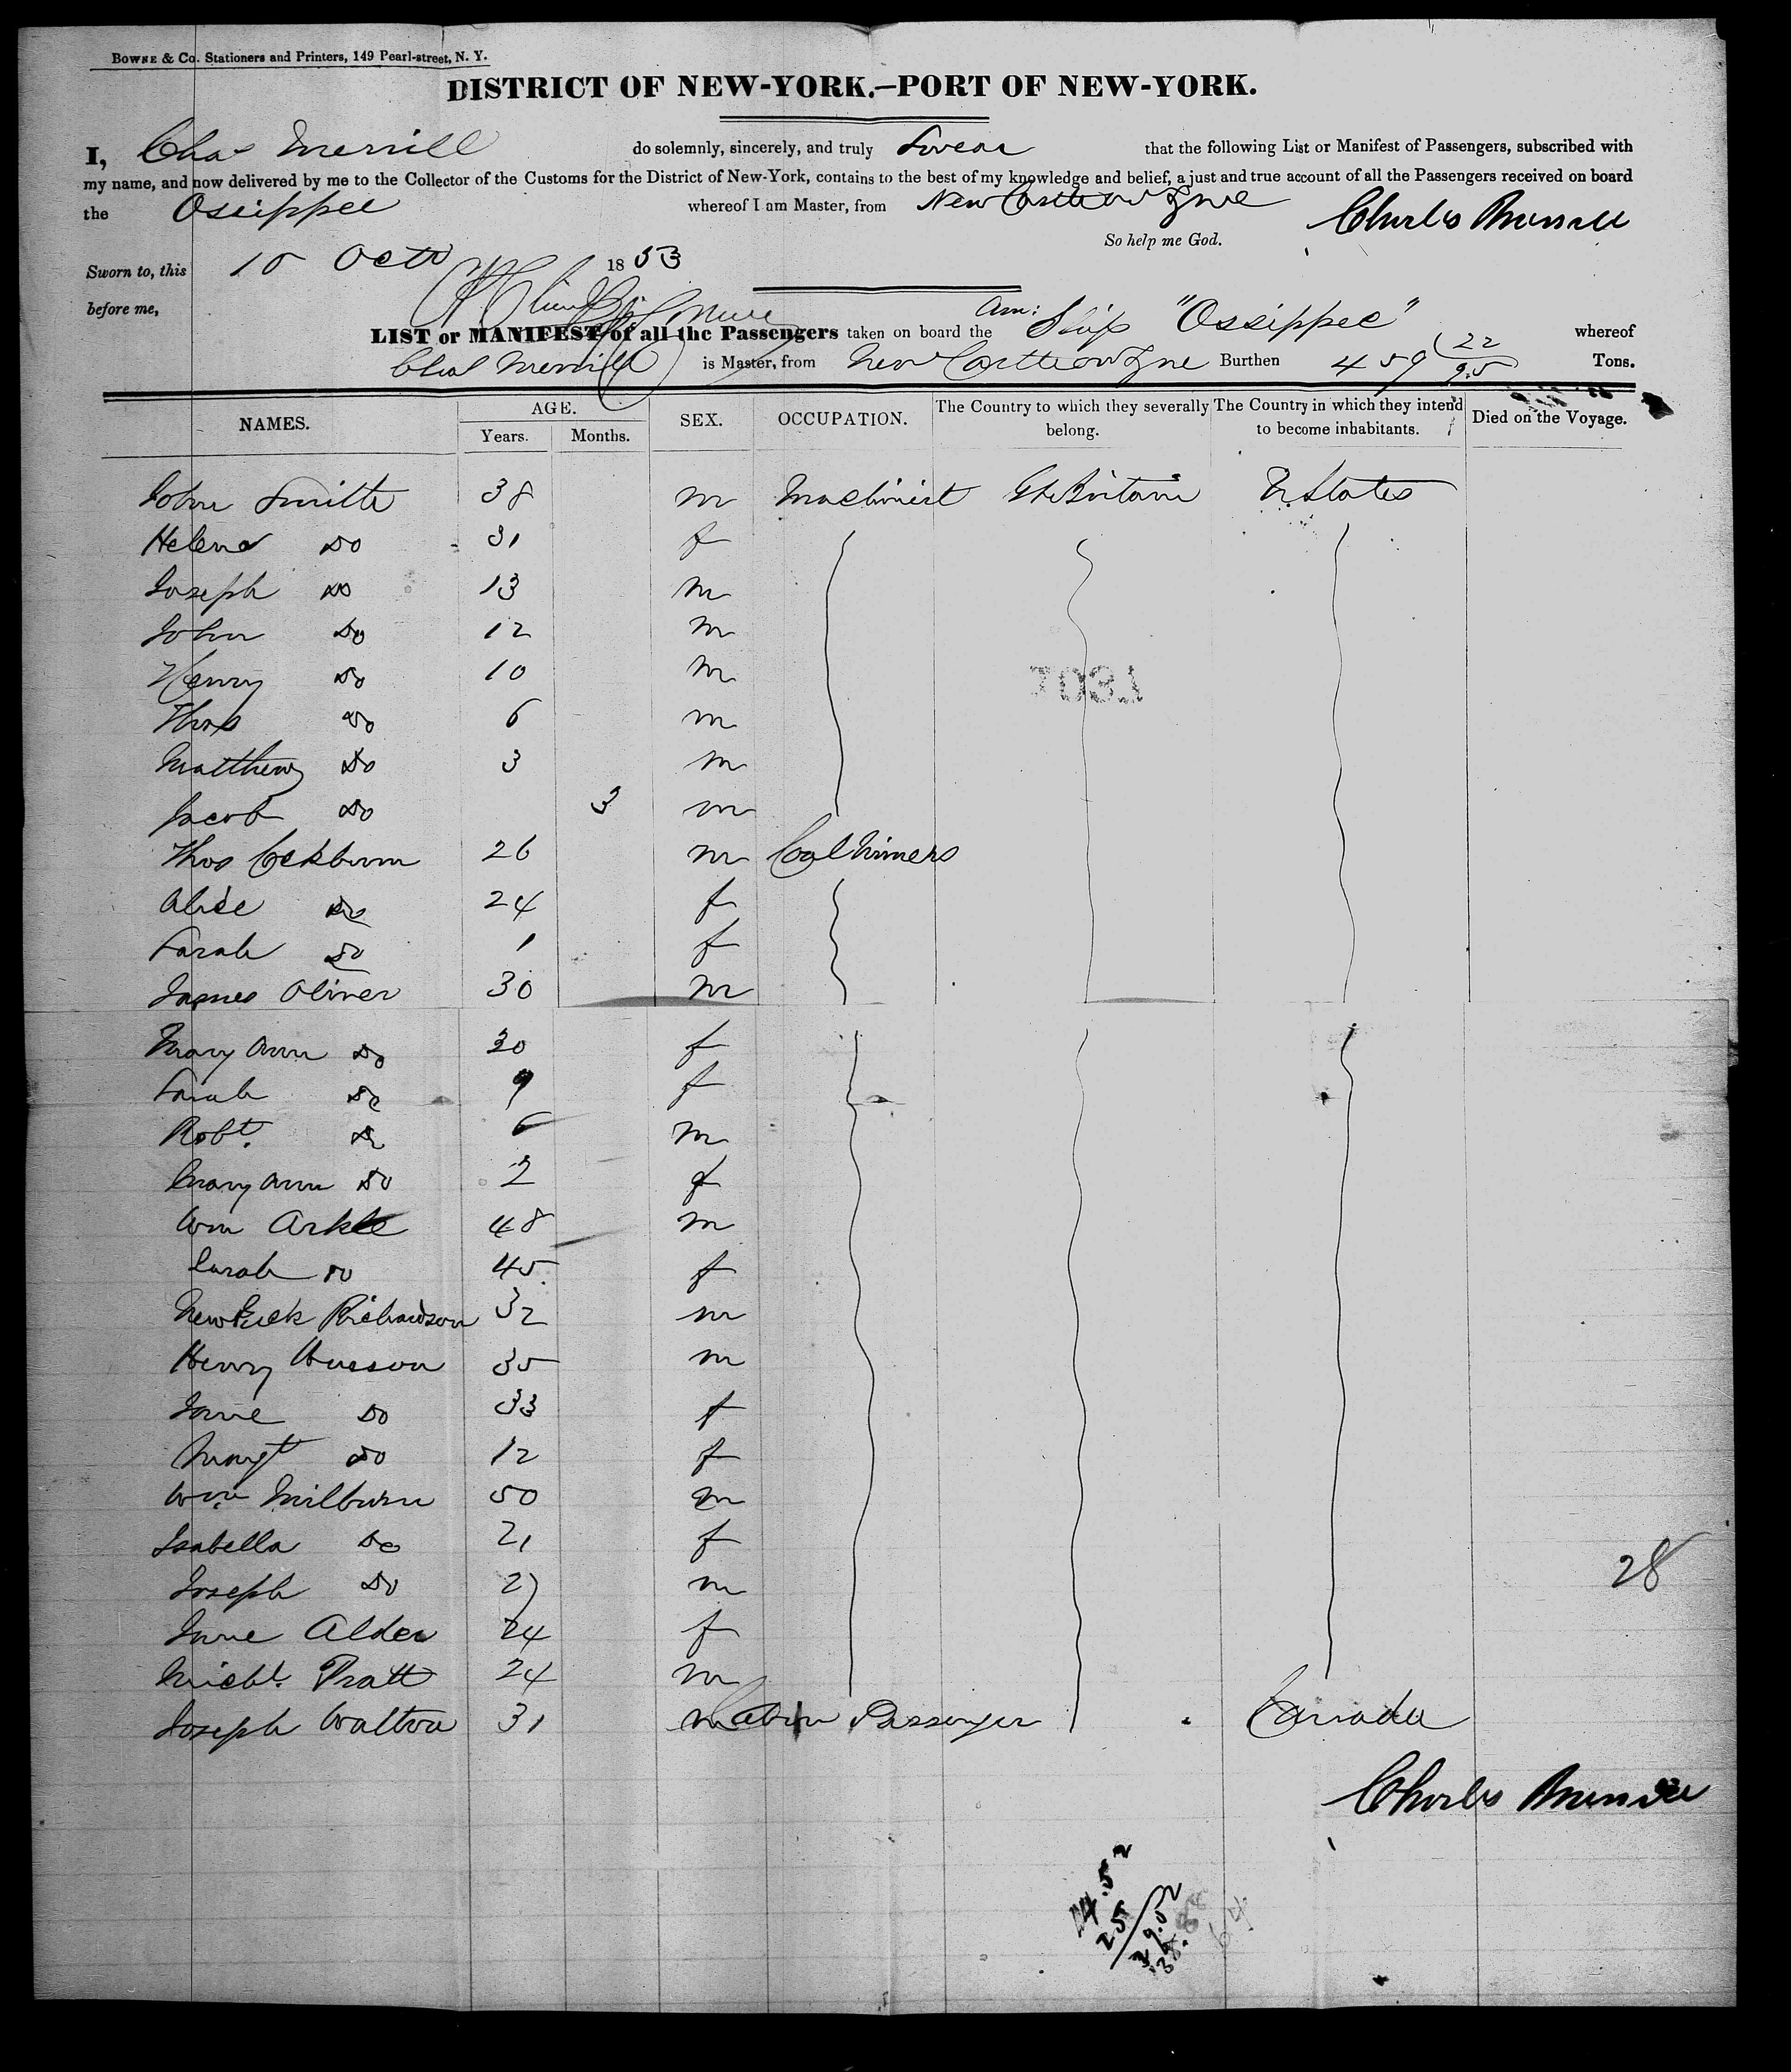 BOWNE & Co. Stationers and Printers, 149 Pearl-street, N. Y.
DISTRICT OF NEW-YORK.—PORT OF NEW-YORK.
I, Chas Merrill do solemnly, sincerely, and truly Swear that the following List or Manifest of Passengers, subscribed with
my name, and now delivered by me to the Collector of the Customs for the District of New-York, contains to the best of my knowledge and belief, a just and true account of all the Passengers received on board
the Ossippee whereof I am Master, from New Castle on Tyne Charles Merrill
So help me God.
Sworn to, this 10 Octo 1853
before me,
LIST or MANIFEST of all the Passengers taken on board the Am: Ship "Ossippee" whereof
Chas Merrill is Master, from New Castle on Tyne Burthen 459 22/95 Tons.
NAMES. AGE. Years. Months. SEX. OCCUPATION. The Country to which they severally belong. The Country in which they intend to become inhabitants. Died on the Voyage.
John Smith 38 m Machinist Gt Britain U States
Helena Do 31 f
Joseph Do 13 m
John Do 12 m
Henry Do 10 m
Thos Do 6 m
Matthew Do 3 m
Jacob Do 3 m
Thos Cockburn 26 m Coal miners
Alice Do 24 f
Sarah Do 1 f
James Oliver 30 m
Mary Ann Do 30 f
Sarah Do 9 f
Robt. Do 6 m
Mary Ann Do 2 f
Wm Arkle 48 m
Sarah Do 45 f
Richardson 32 m
Henry 35 m
Jane Do 33 f
Margt Do 12 f
Wm Milburn 50 m
Isabella Do 21 f
Joseph Do 27 m
Jane Alder 24 f
Michl. Pratt 24 m
Joseph Walton 31 m Cabin Passenger Canada
7031
28
Charles Merrill
14.52
25
39.52
64